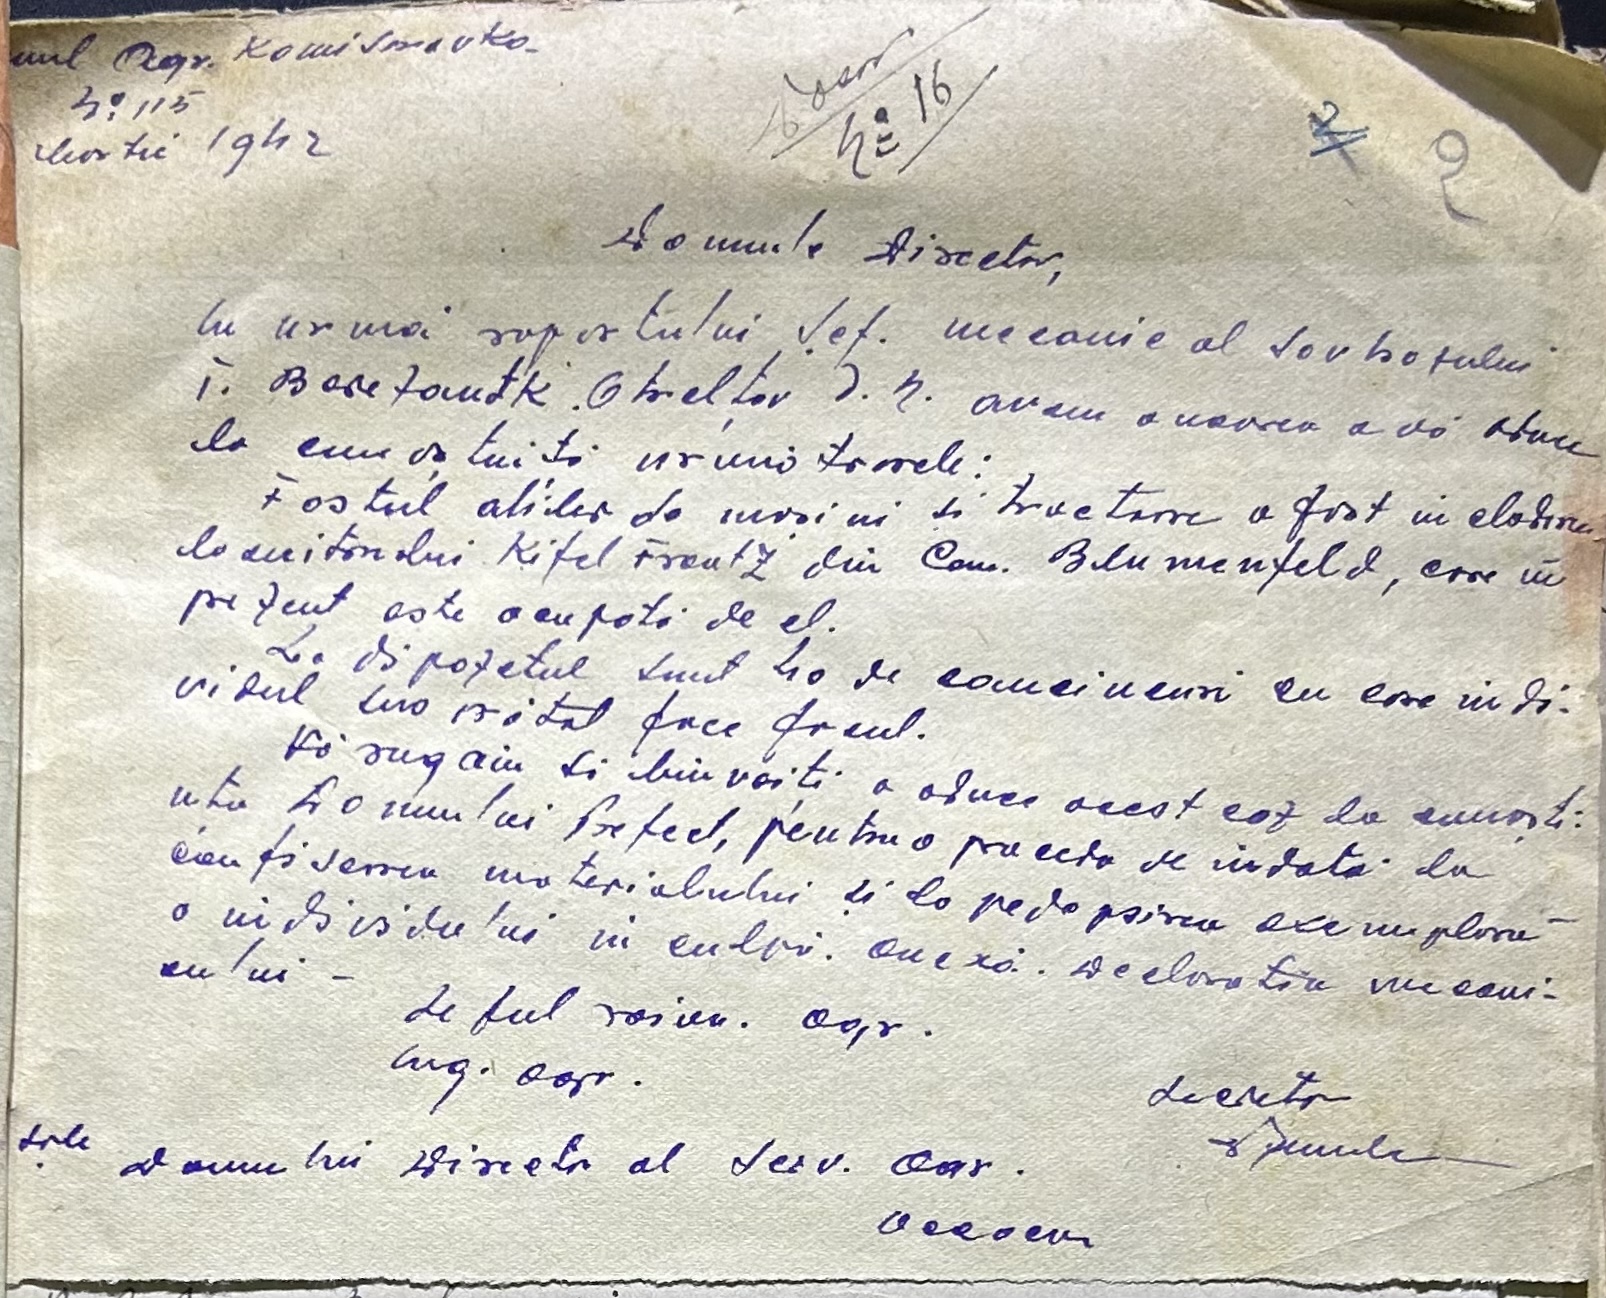 Agr. Komisaravka
No 115
Martie 1942
Dosar
No 16
2
2
Domnule Director,
In urma raportului Şef. mecanic al Sovhozului
T. Berezantk. Streltov I. N. avem onoarea a vă aduce
la cunoştinţă următoarele:
Fostul atilier de maşini şi tractoare a fost in cladirea
locuitorului Kifel Frantz din Com. Blumenfeld, care in
prezent este ocupată de el.
La dipozetul sunt 40 de caucincuri cu care indi-
vidul face
Vă rugăm să binevoiţi a aduce acest caz la cunoşti-
nta Domnului Prefect, pentru a proceda de indată la
confiscarea materialului şi la pedepsirea exemplară
a individului in culpă. Anexă. Declaratia mecani-
cului -
Seful raion. agr.
Ing. agr.
Secretar
D-sale
Domnului Director al Serv. Agr.
Oceacov